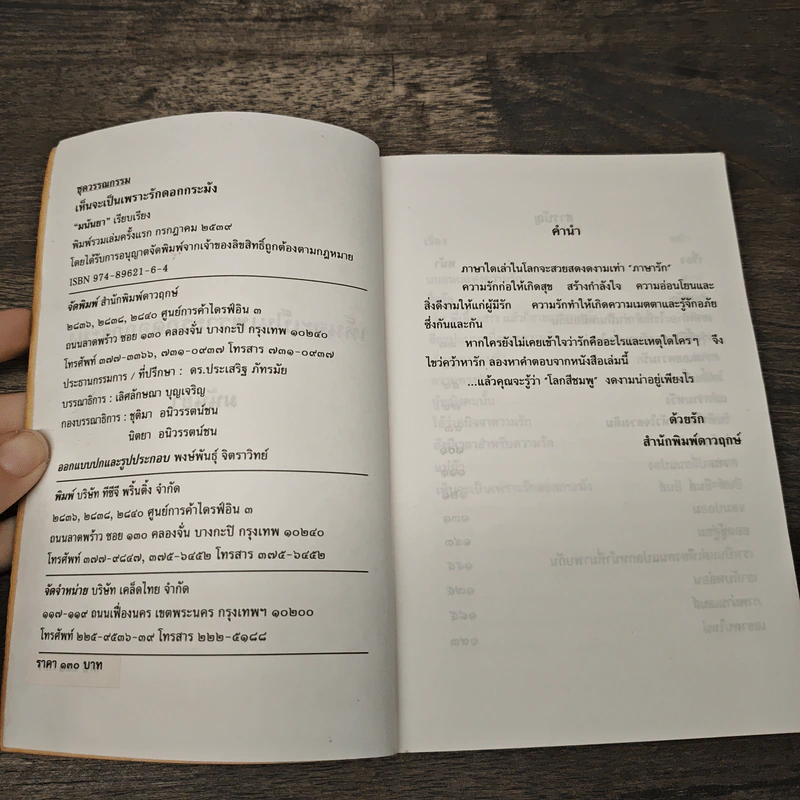 ชุดวรรณกรรม
เห็นจะเป็นเพราะรักดอกกระมัง
"มนันยา" เรียบเรียง
พิมพ์รวมเล่มครั้งแรก กรกฎาคม ๒๕๓๙
โดยได้รับการอนุญาตจัดพิมพ์จากเจ้าของลิขสิทธิ์ถูกต้องตามกฎหมาย
ISBN 974-89621-6-4
จัดพิมพ์ สำนักพิมพ์ดาวฤกษ์
๒๘๓๖, ๒๘๓๘, ๒๘๔๐ ศูนย์การค้าไดรฟ์อิน ๓
ถนนลาดพร้าว ซอย ๑๓๐ คลองจั่น บางกะปิ กรุงเทพ ๑๐๒๔๐
โทรศัพท์ ๓๗๗-๓๓๖๖, ๗๓๑-๐๙๓๗ โทรสาร ๗๓๑-๐๙๓๗
ประธานกรรมการ / ที่ปรึกษา : ดร.ประเสริฐ ภัทรมัย
บรรณาธิการ : เลิศลักษณา บุญเจริญ
กองบรรณาธิการ : ชุติมา อนิวรรตน์ชน
นิตยา อนิวรรตน์ชน
ออกแบบปกและรูปประกอบ พงษ์พันธุ์ จิตราวิทย์
พิมพ์ บริษัท ทีซีจี พริ้นติ้ง จำกัด
๒๘๓๖, ๒๘๓๘, ๒๘๔๐ ศูนย์การค้าไดรฟ์อิน ๓
ถนนลาดพร้าว ซอย ๑๓๐ คลองจั่น บางกะปิ กรุงเทพ ๑๐๒๔๐
โทรศัพท์ ๓๗๗-๙๘๔๗, ๓๗๕-๖๔๕๒ โทรสาร ๓๗๕-๖๔๕๒
จัดจำหน่าย บริษัท เคล็ดไทย จำกัด
๑๑๗-๑๑๙ ถนนเฟื่องนคร เขตพระนคร กรุงเทพฯ ๑๐๒๐๐
โทรศัพท์ ๒๒๕-๙๕๓๖-๓๙ โทรสาร ๒๒๒-๕๑๘๘
ราคา ๑๓๐ บาท
คำนำ
ภาษาใดเล่าในโลกจะสวยสดงดงามเท่า "ภาษารัก"
ความรักก่อให้เกิดสุข สร้างกำลังใจ ความอ่อนโยนและ
สิ่งดีงามให้แก่ผู้มีรัก ความรักทำให้เกิดความเมตตาและรู้จักอภัย
ซึ่งกันและกัน
หากใครยังไม่เคยเข้าใจว่ารักคืออะไรและเหตุใดใครๆ จึง
ไขว่คว้าหารัก ลองหาคำตอบจากหนังสือเล่มนี้
...แล้วคุณจะรู้ว่า "โลกสีชมพู" งดงามน่าอยู่เพียงไร
ด้วยรัก
สำนักพิมพ์ดาวฤกษ์